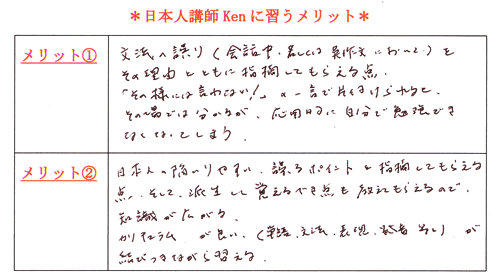 ＊日本人講師Kenに習うメリット＊
メリット①
文法の誤り（会話中、もしくは英作文において）を
その理由とともに指摘してもらえる点。
「その様には言わない！」の一言で片付けられると、
その場では分かるが、応用時に自分で勉強でき
なくなってしまう。
メリット②
日本人の陥いりやすい、誤るポイントを指摘してもらえる
点、そして、派生して覚えるべき点も教えてもらえるので、
知識が広がる。
カリキュラムが良い、（単語、文法、表現、発音等）が
結びつきながら習える。